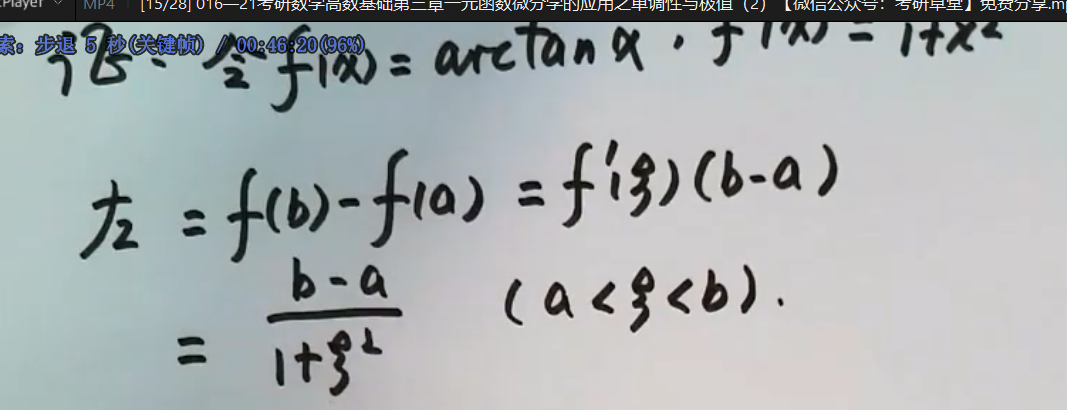 Player MP4 [15/28] 016—21考研数学高数基础第三章一元函数微分学的应用之单调性与极值（2）【微信公众号：考研草堂】免费分享.mp
索: 步退 5 秒(关键帧) / 00:46:20(96%)
证: 令 f(x) = arctan x , f'(x) = 1+x²
左 = f(b) - f(a) = f'(ξ)(b-a)
= \frac{b-a}{1+ξ²} (a<ξ<b).